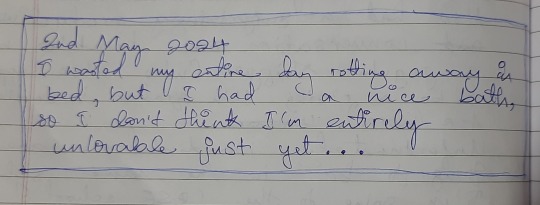 2nd May 2024
I wasted my entire day rotting away in
bed, but I had a nice bath,
so I don't think I'm entirely
unlovable just yet...